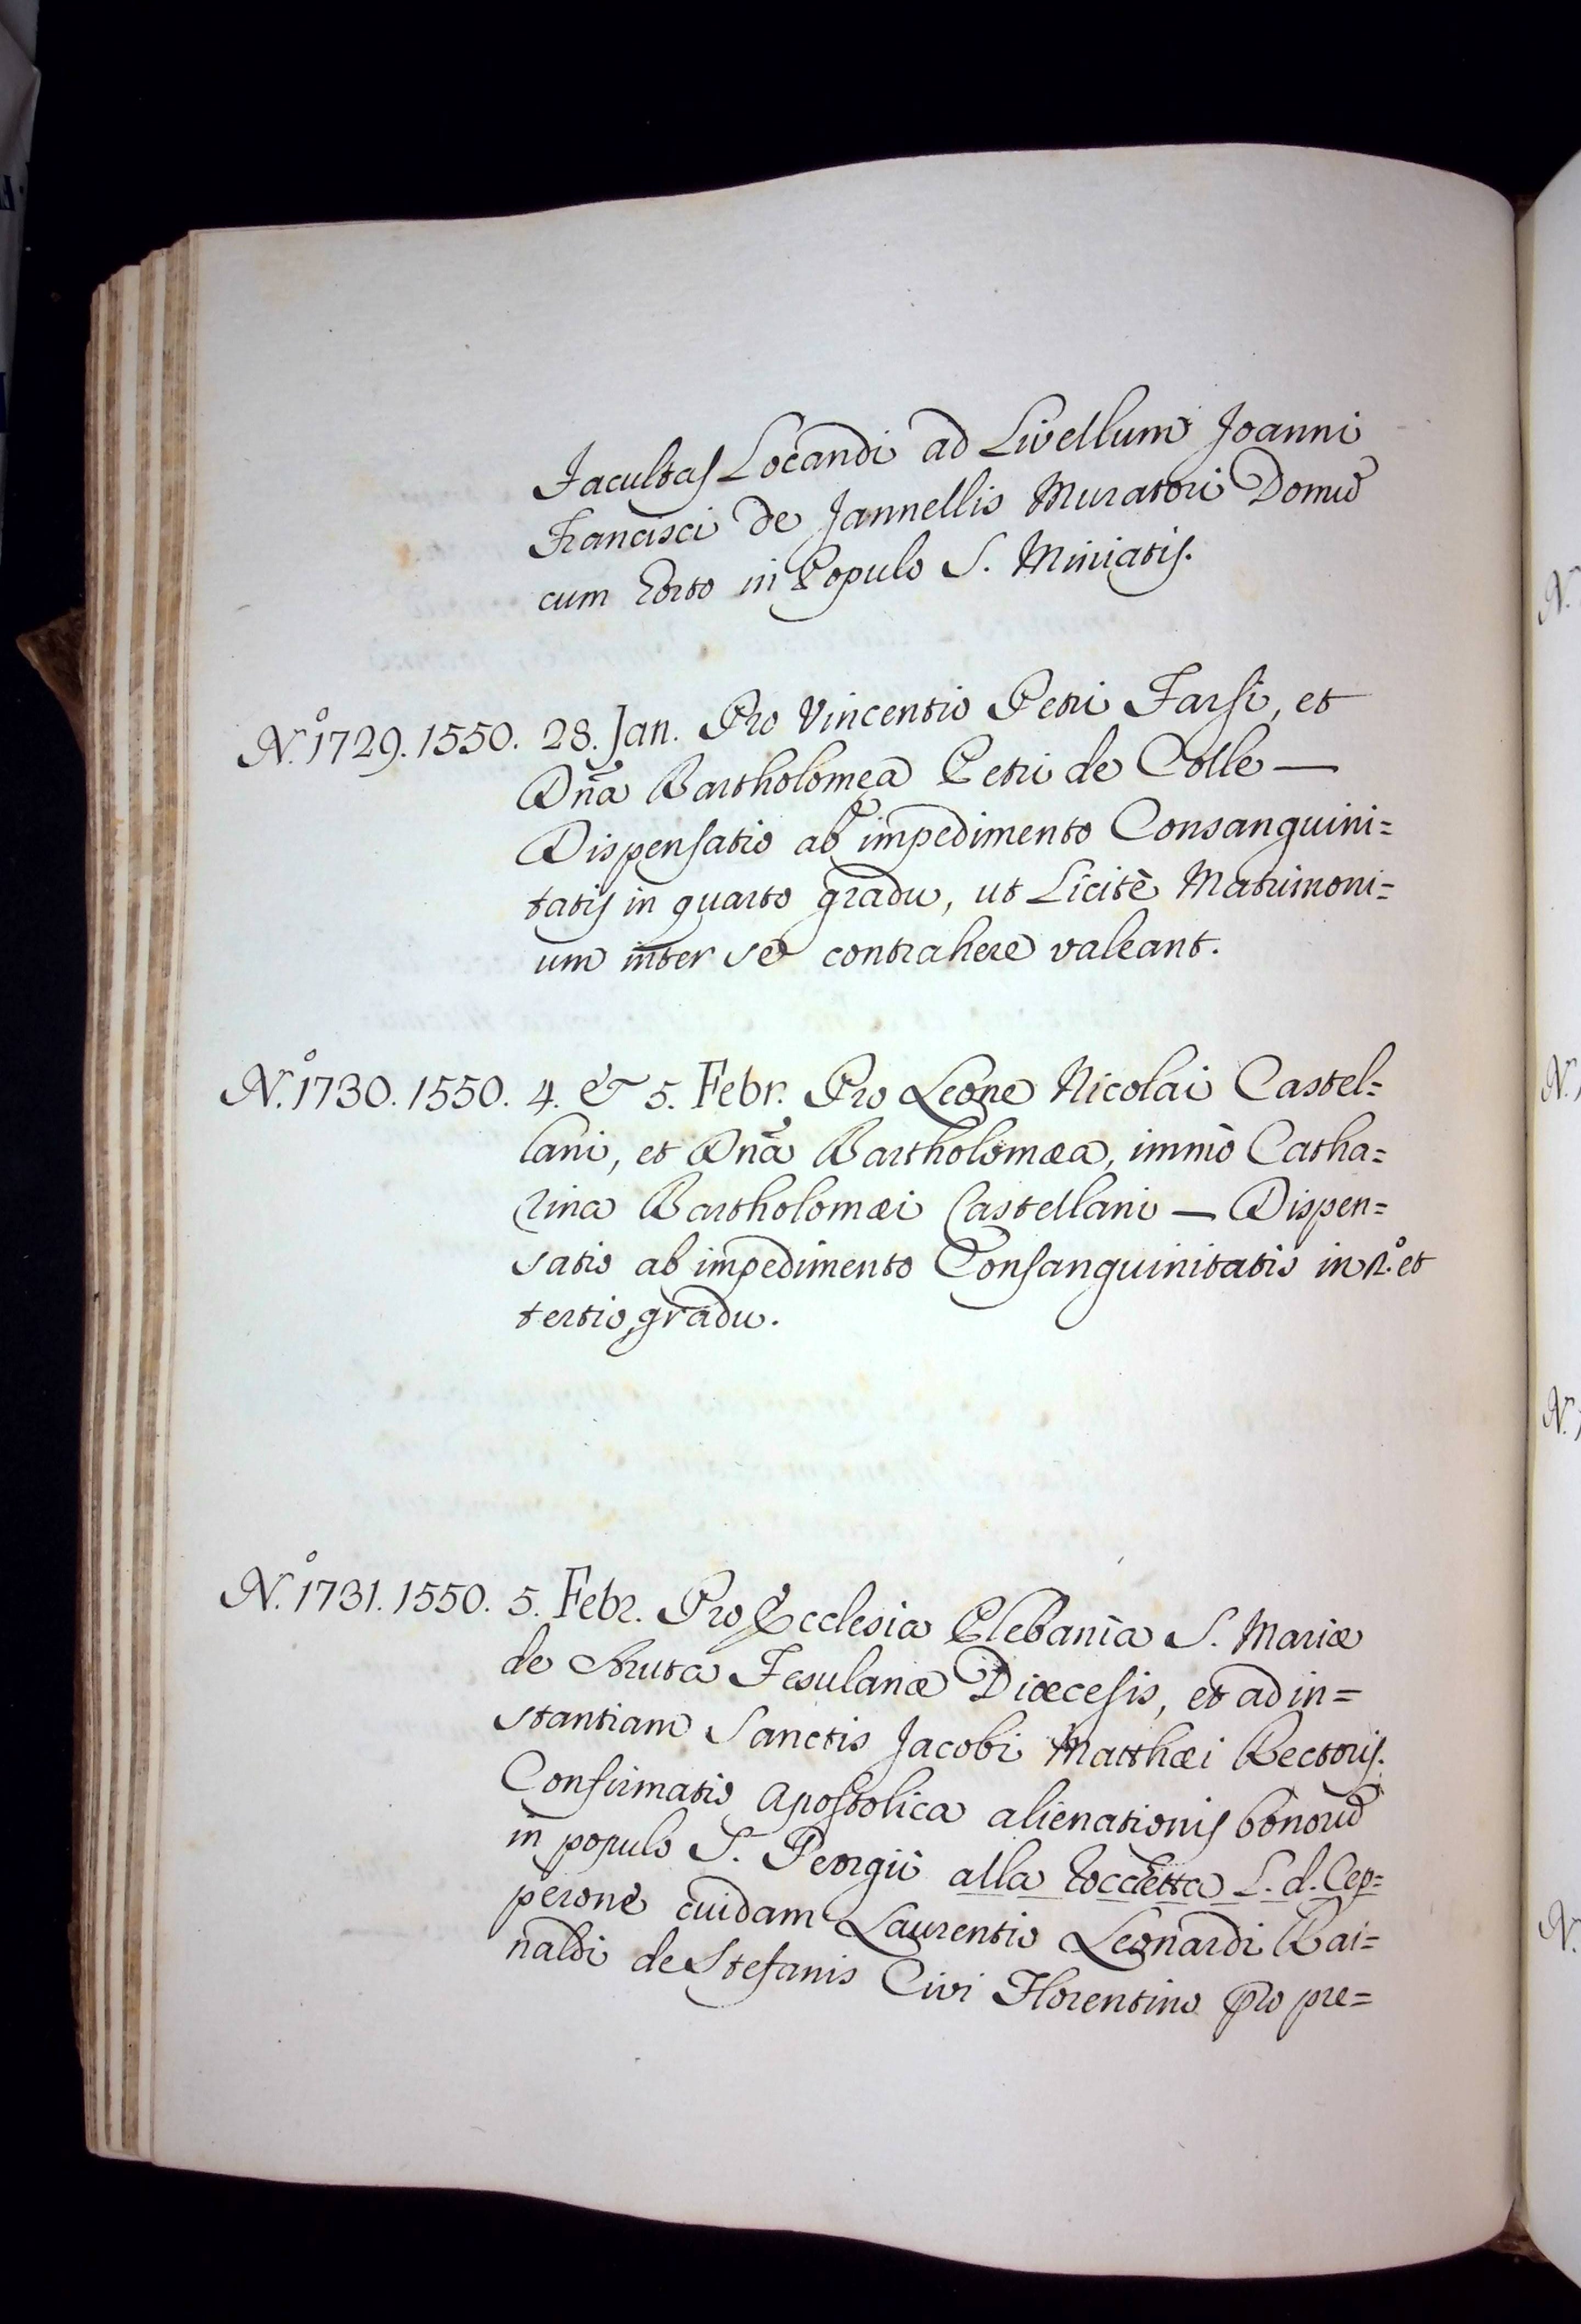 Facultas Locandi ad Livellum Joanni
Francisci de Jannellis Muratori Domũ
cum Orto in Populo S. Miniatis.
N.º 1729. 1550. 28. Jan. Pro Vincentio Petri Farsi, et
Dñã Bartholomęa Petri de Colle —
Dispensatio ab impedimento Consanguini=
tatis in quarto gradu, ut Licitè Matrimoni=
um inter se contrahere valeant.
N.º 1730. 1550. 4. & 5. Febr. Pro Leone Nicolai Castel=
lani, et Dñã Bartholomæa, immò Catha=
rina Bartholomæi Castellani — Dispen=
satio ab impedimento Consanguinitatis in 2.º et
tertio gradu.
N.º 1731. 1550. 5. Febr. Pro Ecclesia Plebania S. Mariæ
de Fesulanæ Diœcesis, et ad in=
stantiam Sanctis Jacobi Matthæi Rectoris.
Confirmatio Apostolica alienationis bonorũ
in populo S. Georgii alla L. d. Cep=
perone cuidam Laurentio Leonardi Rai=
naldi de Stefanis Civi Florentino pro pre=
N.
N.
N.
N.